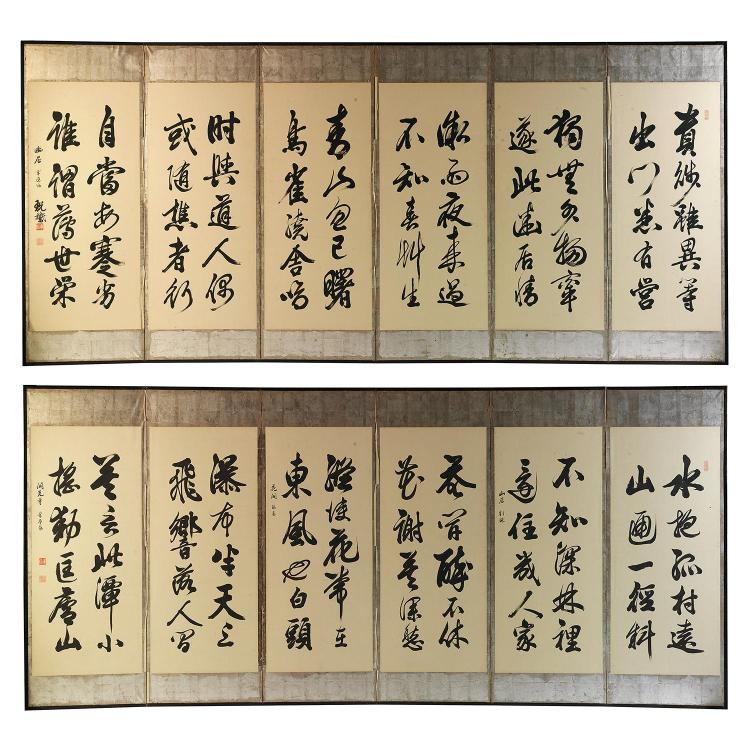 貴賤雖異等
出門皆有營
獨無外物牽
遂此幽居情
微雨夜來過
不知春草生
青山忽已曙
鳥雀繞舍鳴
時與道人偶
或隨樵者行
自當安蹇劣
誰謂薄世榮
幽居
水抱孤村遠
山通一徑斜
不知深林裡
還住幾人家
山居
醉不休
花謝莫深愁
縱使花常在
東風也白頭
瀑布半天上
飛響落人間
莫言此潭小
搖動匡廬山